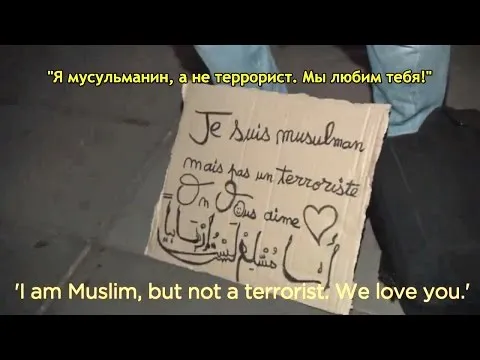 "Я мусульманин, а не террорист. Мы любим тебя!"
Je suis musulman
mais pas un terroriste
On Vous aime
أنا مسلم لست إرهابيا
'I am Muslim, but not a terrorist. We love you.'